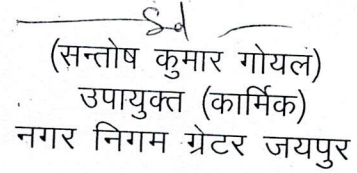 Sd
(सन्तोष कुमार गोयल)
उपायुक्त (कार्मिक)
नगर निगम ग्रेटर जयपुर